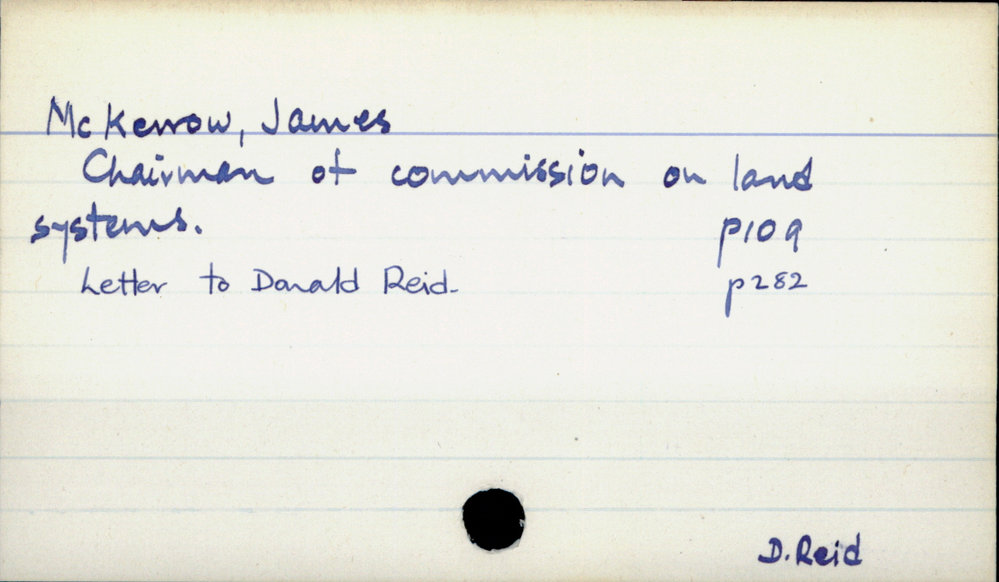 McKerrow, James
Chairman of commission on land
systems. p109
Letter to Donald Reid. p282
D. Reid